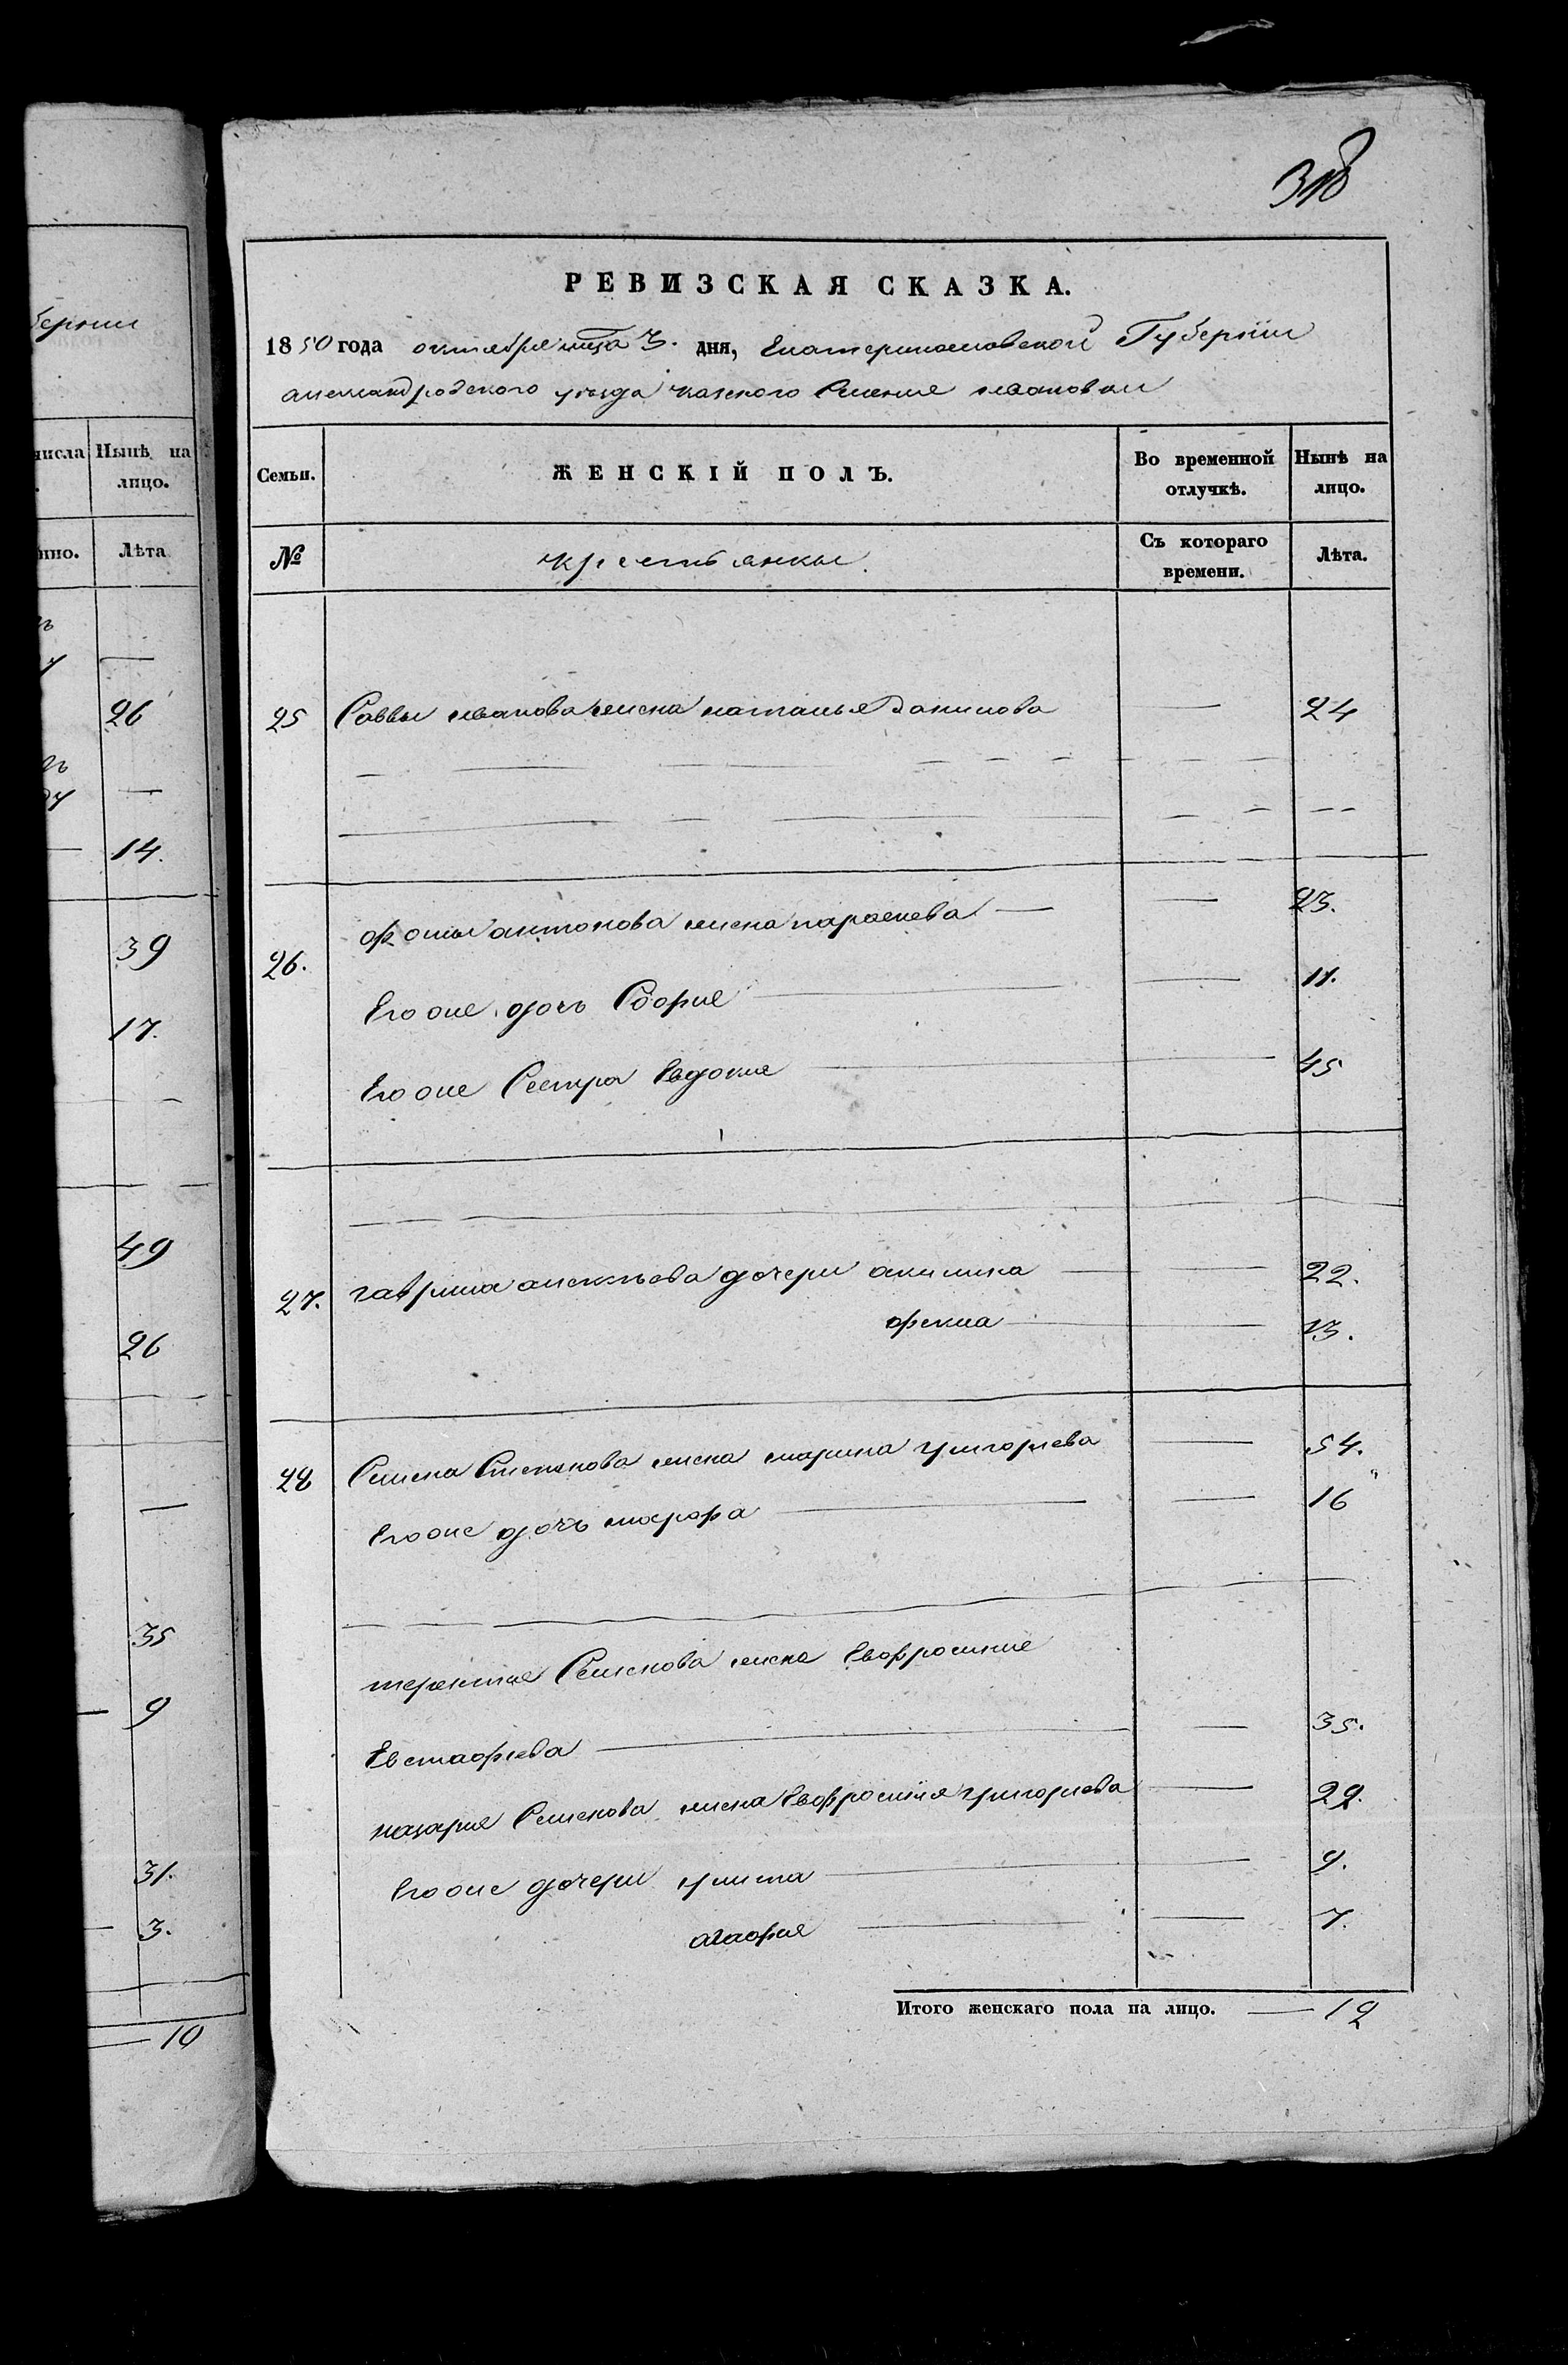 берніи
числа Нынѣ на
лицо.
нно. Лѣта
26
14.
39
17.
49
26
35
9
31.
3.
10
318
РЕВИЗСКАЯ СКАЗКА.
1850 года октября мца 3. дня, Екатеринославской Губерніи
александровского уезда казеного Селения ивановки
Семьи. ЖЕНСКІЙ ПОЛЪ. Во временной отлучкѣ. Нынѣ на лицо.
№ крестьянки. Съ котораго времени. Лѣта.
25 Саввы иванова жена наталья Данилова — 24
26. фомы антонова жена параскева — 23.
Его же дочь София — 11.
Его же Сестра Евдокия 45
27. гаврила алексеева дочери акилина — 22.
фекла — 13.
28 Семена Степанова жена марина григориева — 54.
Его же дочь марфа — 16
терентия Семенова жена Евфросиния
Евстафиева — 35.
назария Семенова жена Евфросиния григориева — 29.
Его же дочери улита — 9.
агафия — 7.
Итого женскаго пола на лицо. — 12